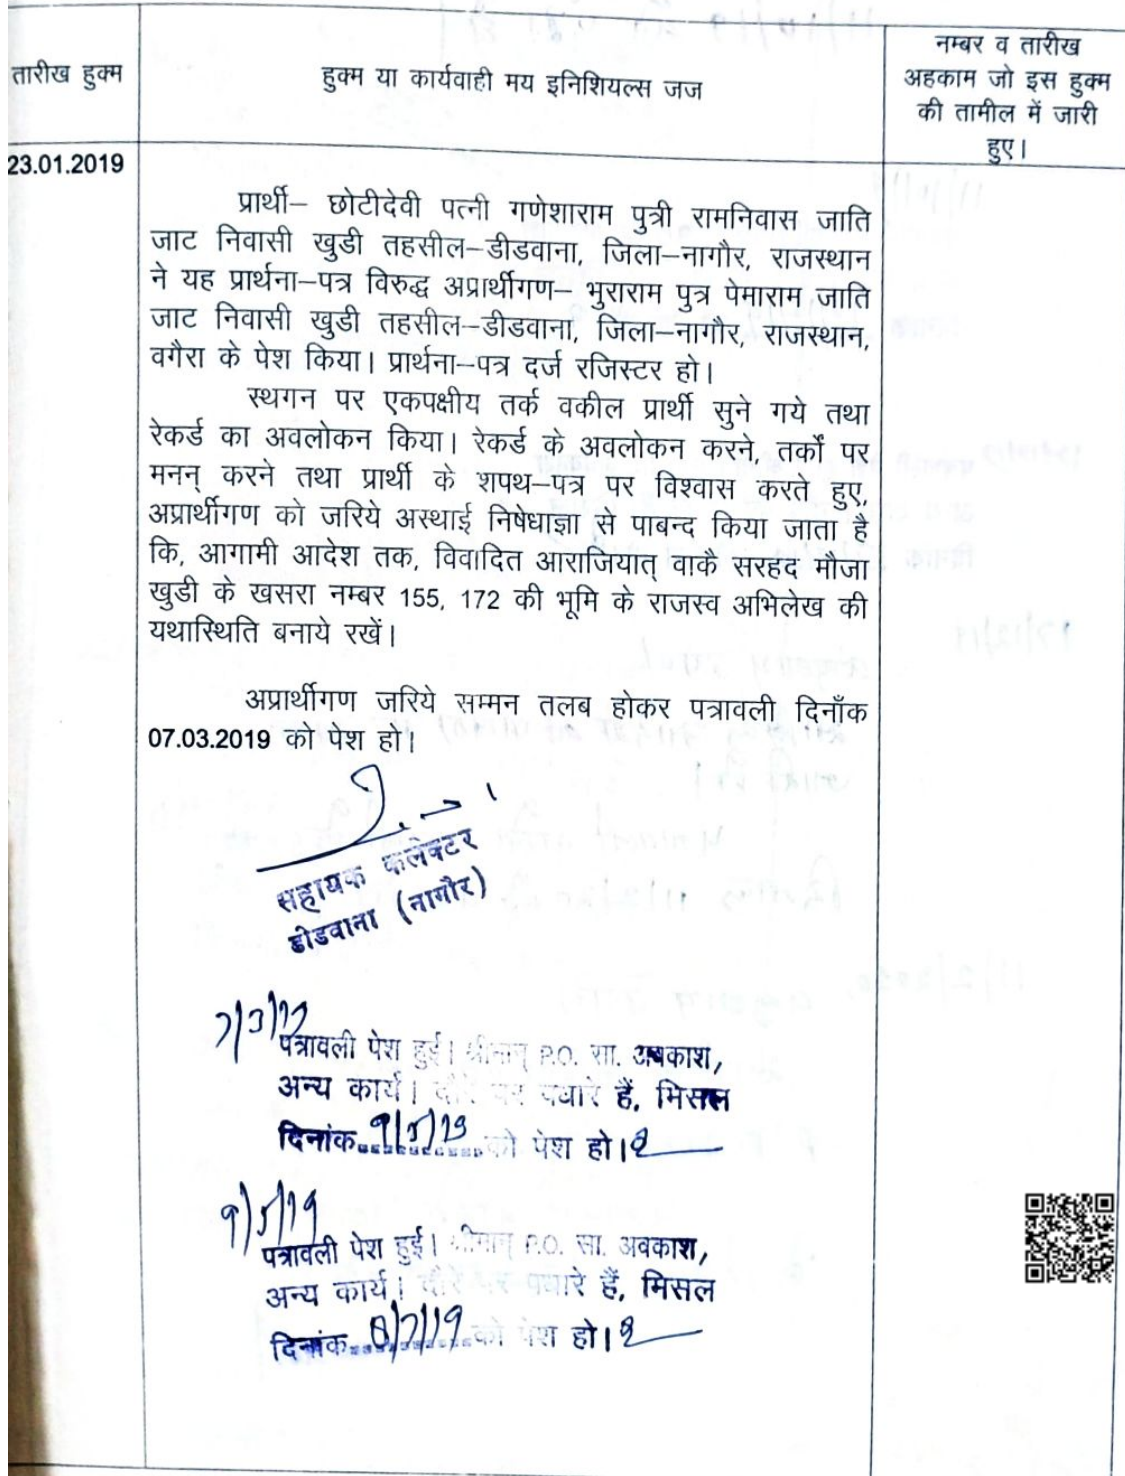 तारीख हुक्म
हुक्म या कार्यवाही मय इनिशियल्स जज
नम्बर व तारीख
अहकाम जो इस हुक्म
की तामील में जारी
हुए।
23.01.2019
प्रार्थी– छोटीदेवी पत्नी गणेशाराम पुत्री रामनिवास जाति
जाट निवासी खुडी तहसील–डीडवाना, जिला–नागौर, राजस्थान
ने यह प्रार्थना–पत्र विरुद्ध अप्रार्थीगण– भुराराम पुत्र पेमाराम जाति
जाट निवासी खुडी तहसील–डीडवाना, जिला–नागौर, राजस्थान,
वगैरा के पेश किया। प्रार्थना–पत्र दर्ज रजिस्टर हो।
स्थगन पर एकपक्षीय तर्क वकील प्रार्थी सुने गये तथा
रेकर्ड का अवलोकन किया। रेकर्ड के अवलोकन करने, तर्कों पर
मनन् करने तथा प्रार्थी के शपथ–पत्र पर विश्वास करते हुए,
अप्रार्थीगण को जरिये अस्थाई निषेधाज्ञा से पाबन्द किया जाता है
कि, आगामी आदेश तक, विवादित आराजियात् वाकै सरहद मौजा
खुडी के खसरा नम्बर 155, 172 की भूमि के राजस्व अभिलेख की
यथास्थिति बनाये रखें।
अप्रार्थीगण जरिये सम्मन तलब होकर पत्रावली दिनाँक
07.03.2019 को पेश हो।
सहायक कलेक्टर
डीडवाना (नागौर)
7/3/19
पत्रावली पेश हुई। श्रीमान् P.O. सा. अवकाश,
अन्य कार्य। दौरे पर पधारे हैं, मिसल
दिनांक 9/5/19 को पेश हो।
9/5/19
पत्रावली पेश हुई। श्रीमान् P.O. सा. अवकाश,
अन्य कार्य। दौरे पर पधारे हैं, मिसल
दिनांक 8/7/19 को पेश हो।